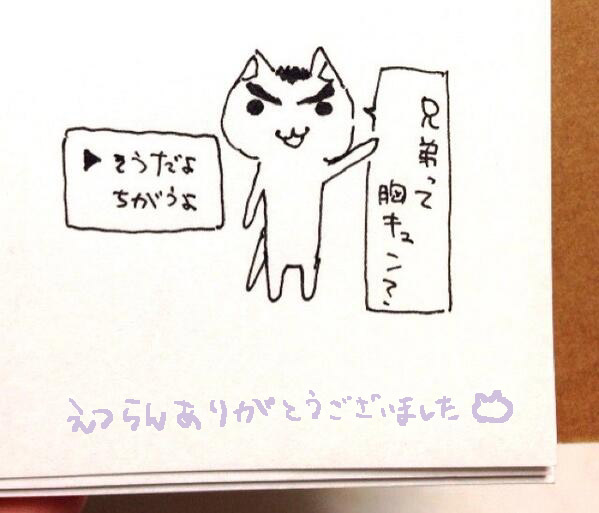 兄弟って
胸キュン?
▶そうだよ
ちがうよ
えつらんありがとうございました